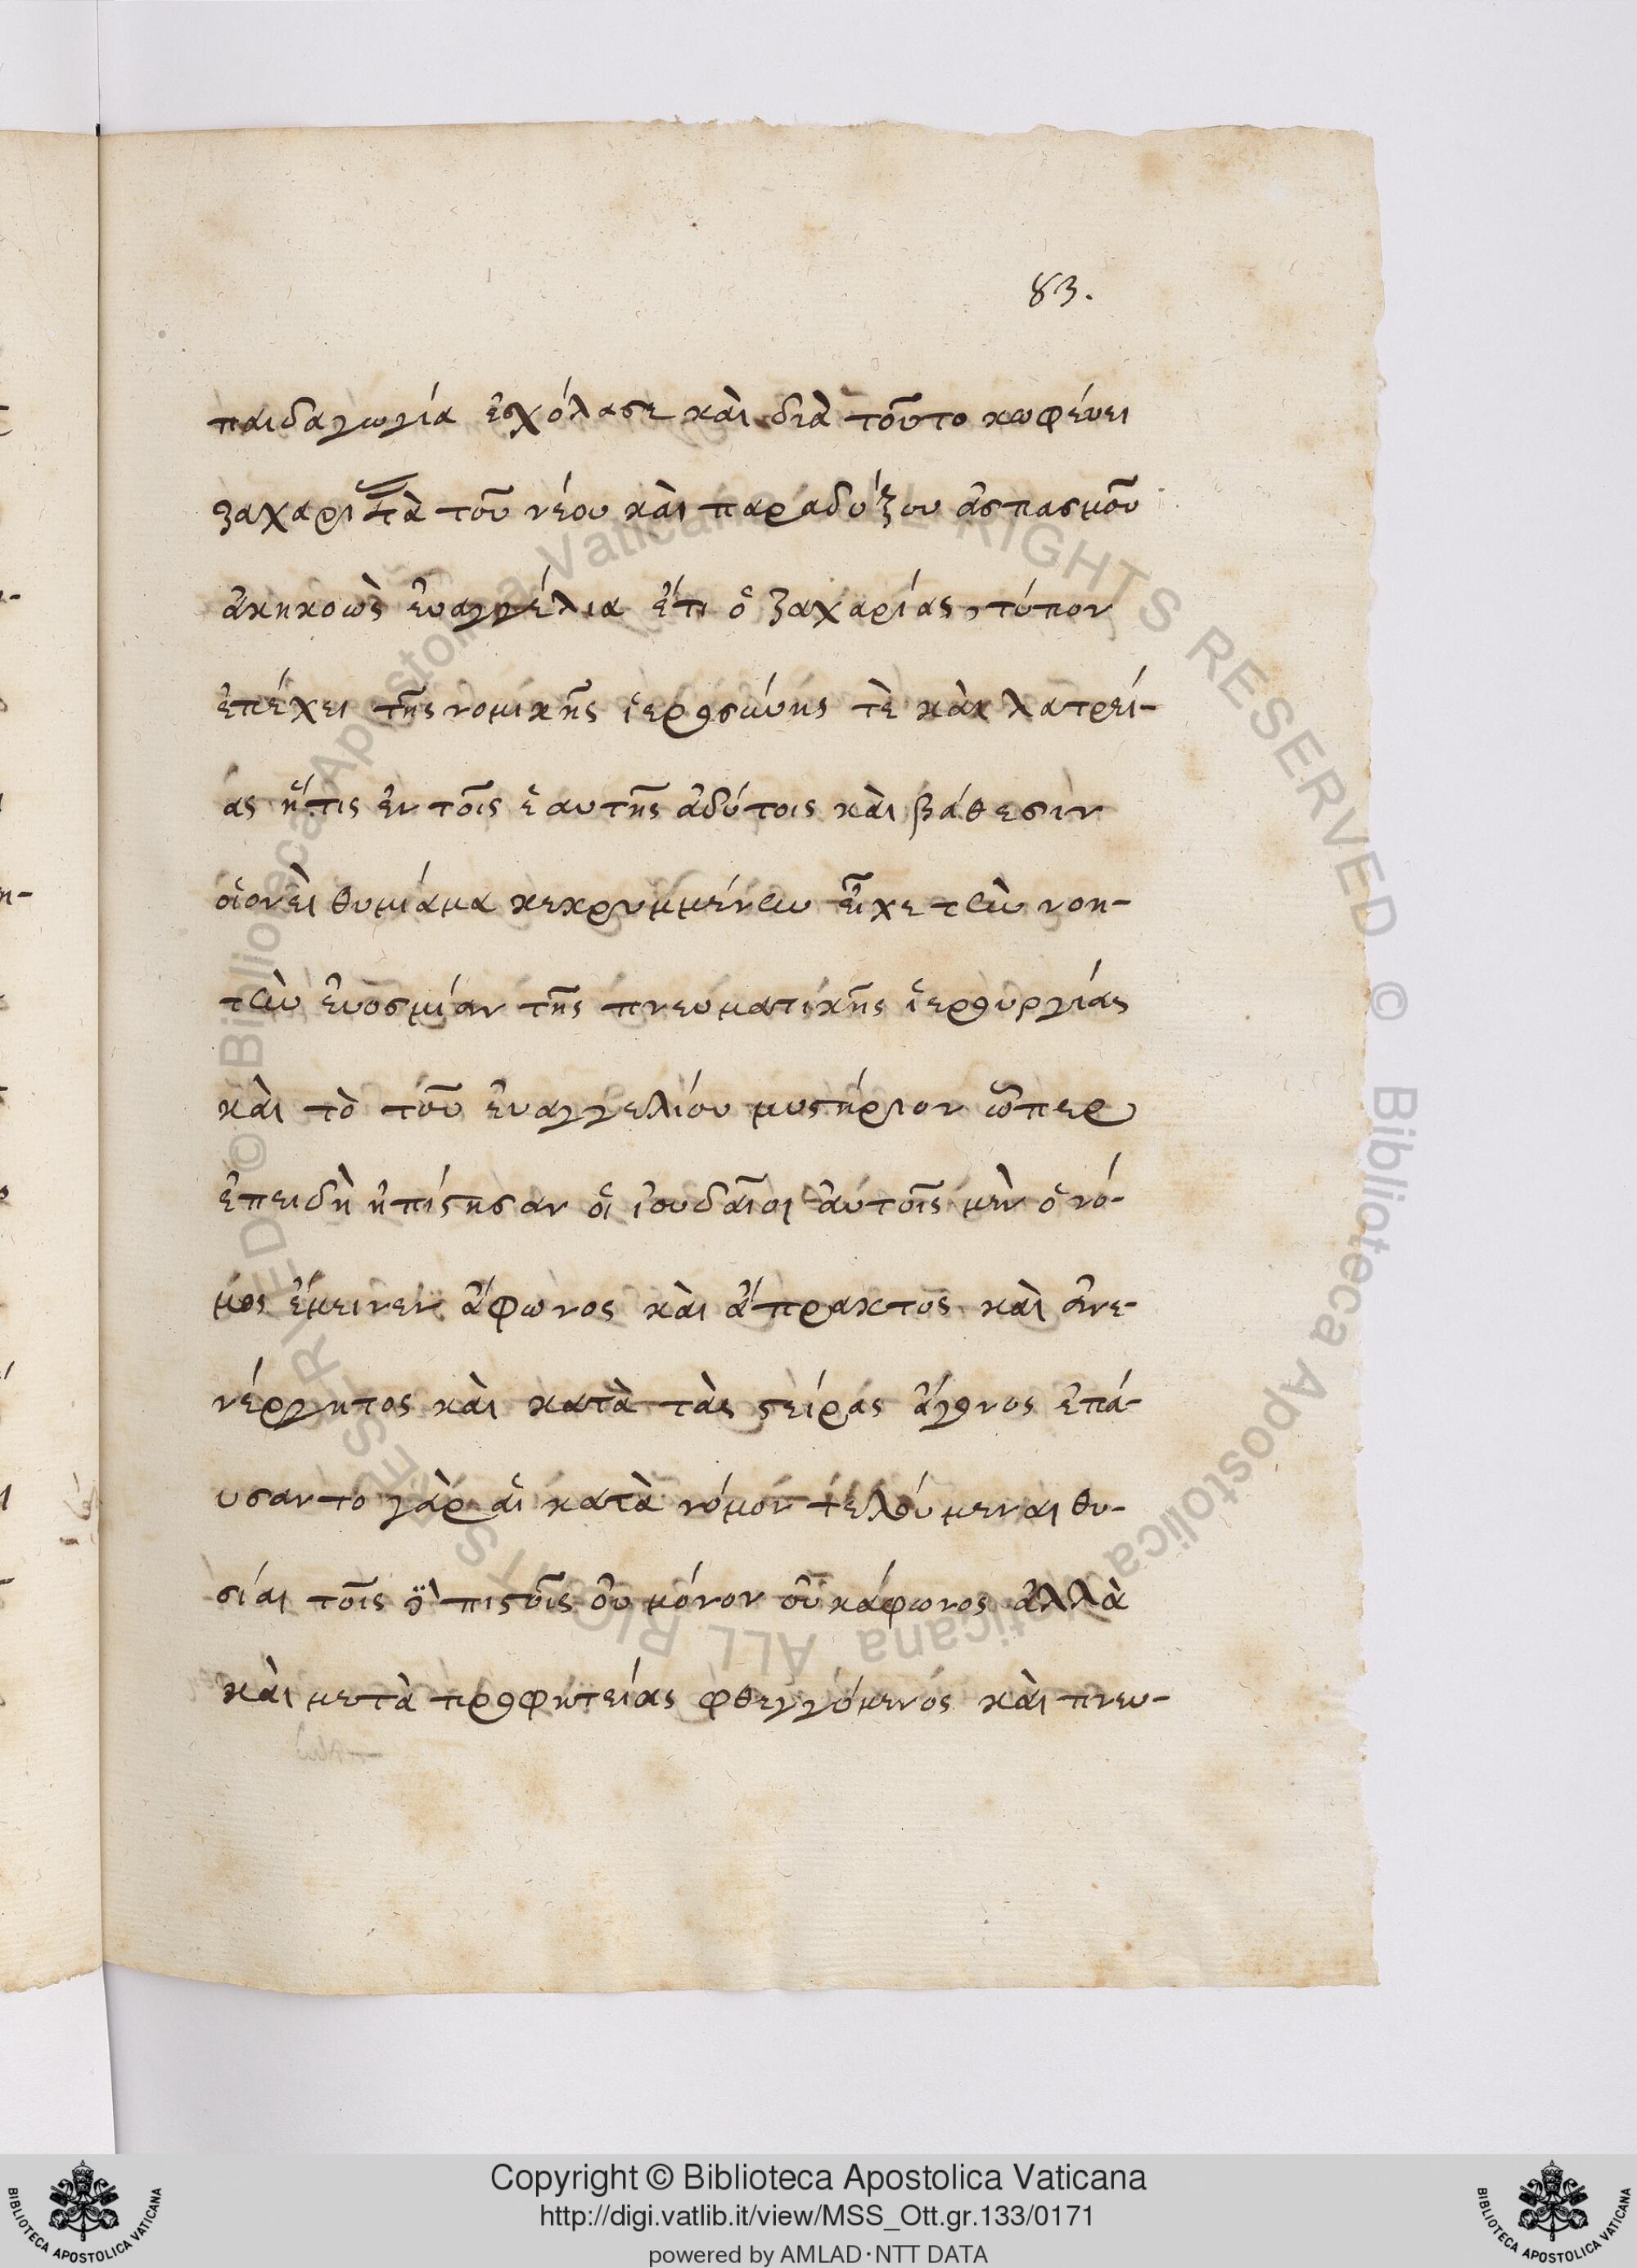 83.
παιδαγωγία ἐσχόλασε καὶ διὰ τοῦτο κωφεύει
ζαχαρίας τὰ τοῦ νέου καὶ παραδόξου ἀσπασμοῦ
ἀκηκοὼς ἐυαγγέλια ἔτι ὁ ζαχαρίας, τύπον
ἐπέχει τῆς νομικῆς ἱερωσύνης τὲ καὶ λατρεί-
ας ἥτις ἐν τοῖς ἑαυτῆς ἀδύτοις καὶ βάθεσιν
οἱονεὶ θυμίαμα κεκρυμμένην εἶχε τὴν νοη-
τὴν ἐυοσμίαν τῆς πνευματικῆς ἱερουργίας
καὶ τὸ τοῦ ἐυαγγελίου μυστήριον ὧπερ
ἐπειδὴ ἠπίστησαν οἱ ἰουδαῖοι ἀυτοῖς μὲν ὁ νό-
μος ἔμεινεν ἄφωνος καὶ ἄπρακτος καὶ ἀνε-
νέργητος καὶ κατὰ τὰς στείρας ἄγονος ἐπά-
υσαντο γὰρ αἱ κατὰ νόμον τελούμεναι θυ-
σίαι τοῖς δὲ πιστοῖς ὀυ μόνον ὀυκ άφωνος ἀλλὰ
καὶ μετὰ προφητείας φθεγγόμενος καὶ πνευ-
Copyright © Biblioteca Apostolica Vaticana
http://digi.vatlib.it/view/MSS_Ott.gr.133/0171
powered by AMLAD·NTT DATA
BIBLIOTECA APOSTOLICA VATICANA
BIBLIOTECA APOSTOLICA VATICANA
© Biblioteca Apostolica Vaticana ALL RIGHTS RESERVED © Biblioteca Apostolica Vaticana ALL RIGHTS RESERVED